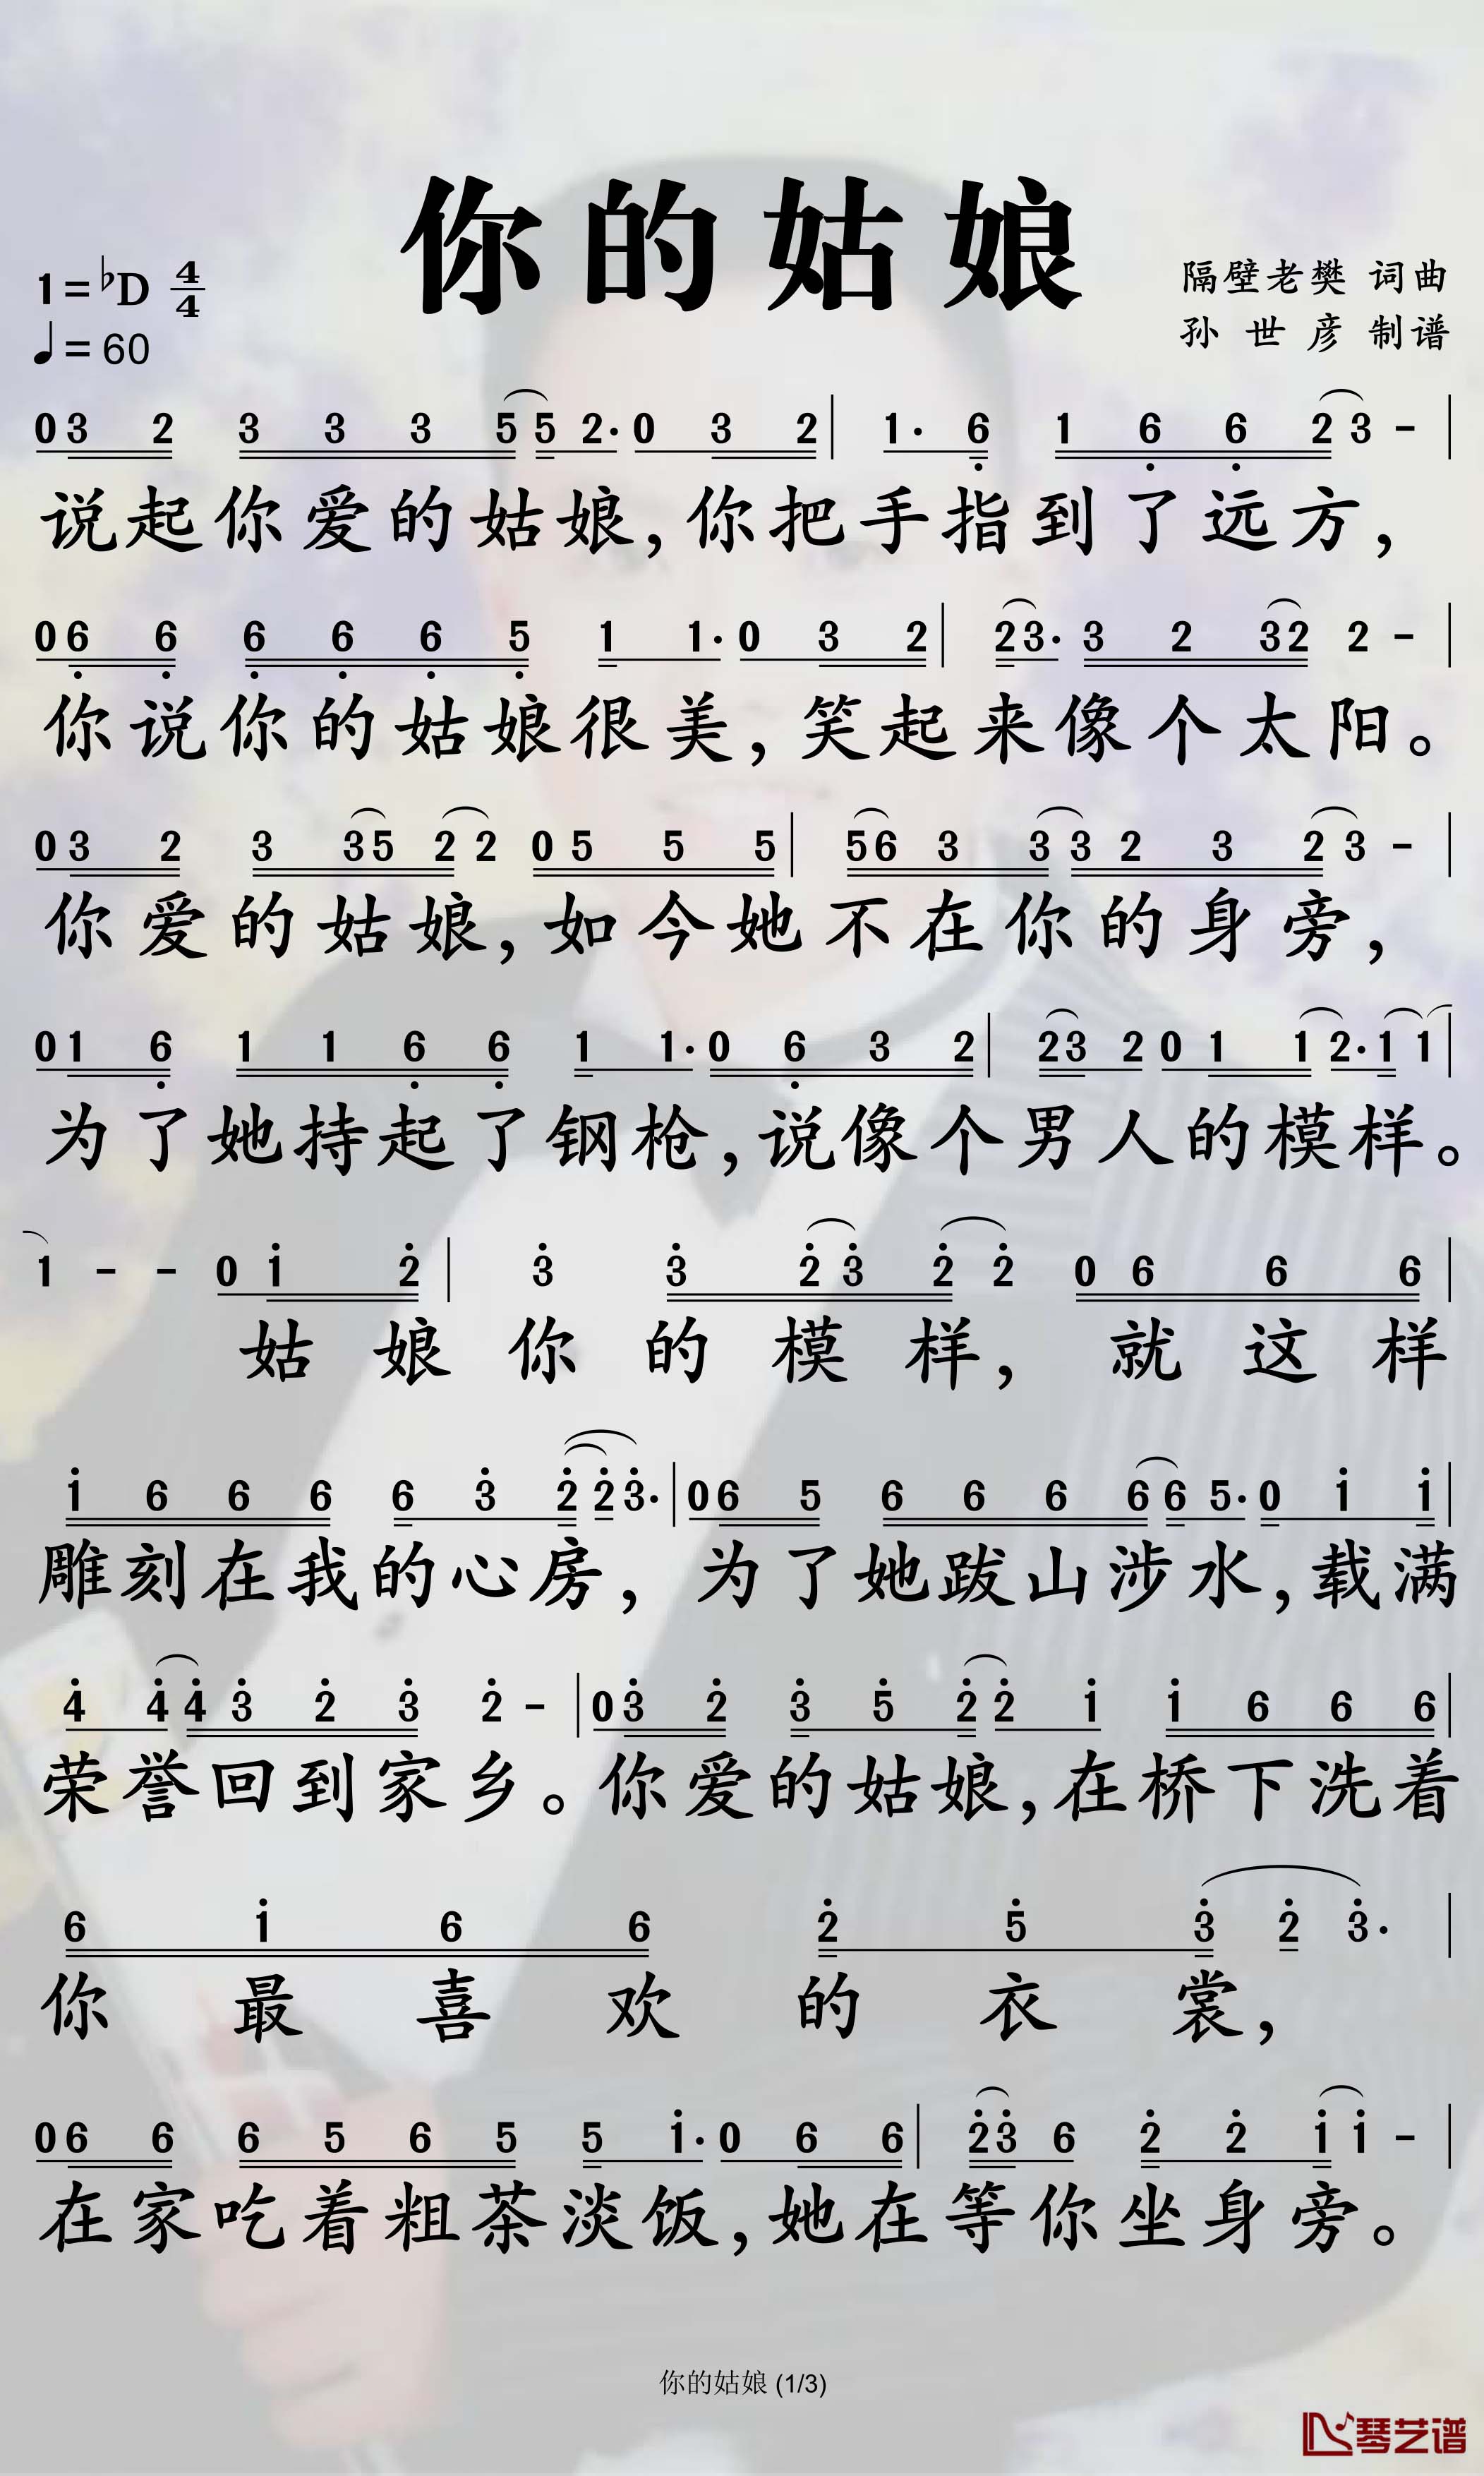 你的姑娘
1=♭D 4/4
♩=60
隔壁老樊 词曲
孙世彦 制谱
0 3 2 3 3 3 5 5 2· 0 3 2 | 1· 6̣ 1 6̣ 6̣ 2 3 - |
说起你爱的姑娘,你把手指到了远方,
0 6̣ 6̣ 6̣ 6̣ 6̣ 5̣ 1 1· 0 3 2 | 2 3· 3 2 3 2 2 - |
你说你的姑娘很美,笑起来像个太阳。
0 3 2 3 3 5 2 2 0 5 5 5 | 5 6 3 3 3 2 3 2 3 - |
你爱的姑娘,如今她不在你的身旁,
0 1 6̣ 1 1 6̣ 6̣ 1 1· 0 6̣ 3 2 | 2 3 2 0 1 1 2· 1 1 |
为了她持起了钢枪,说像个男人的模样。
1 - - 0 1̇ 2̇ | 3̇ 3̇ 2̇ 3̇ 2̇ 2̇ 0 6 6 6 |
姑娘你的模样,就这样
1̇ 6 6 6 6 3̇ 2̇ 2̇ 3̇· | 0 6 5 6 6 6 6 6 5· 0 1̇ 1̇ |
雕刻在我的心房,为了她跋山涉水,载满
4̇ 4̇ 4̇ 3̇ 2̇ 3̇ 2̇ - | 0 3̇ 2̇ 3̇ 5̇ 2̇ 2̇ 1̇ 1̇ 6 6 6 |
荣誉回到家乡。你爱的姑娘,在桥下洗着
6 1̇ 6 6 2̇ 5̇ 3̇ 2̇ 3̇· |
你最喜欢的衣裳,
0 6 6 6 5 6 5 5 1̇· 0 6 6 | 2̇ 3̇ 6 2̇ 2̇ 1̇ 1̇ - |
在家吃着粗茶淡饭,她在等你坐身旁。
你的姑娘 (1/3)
琴艺谱